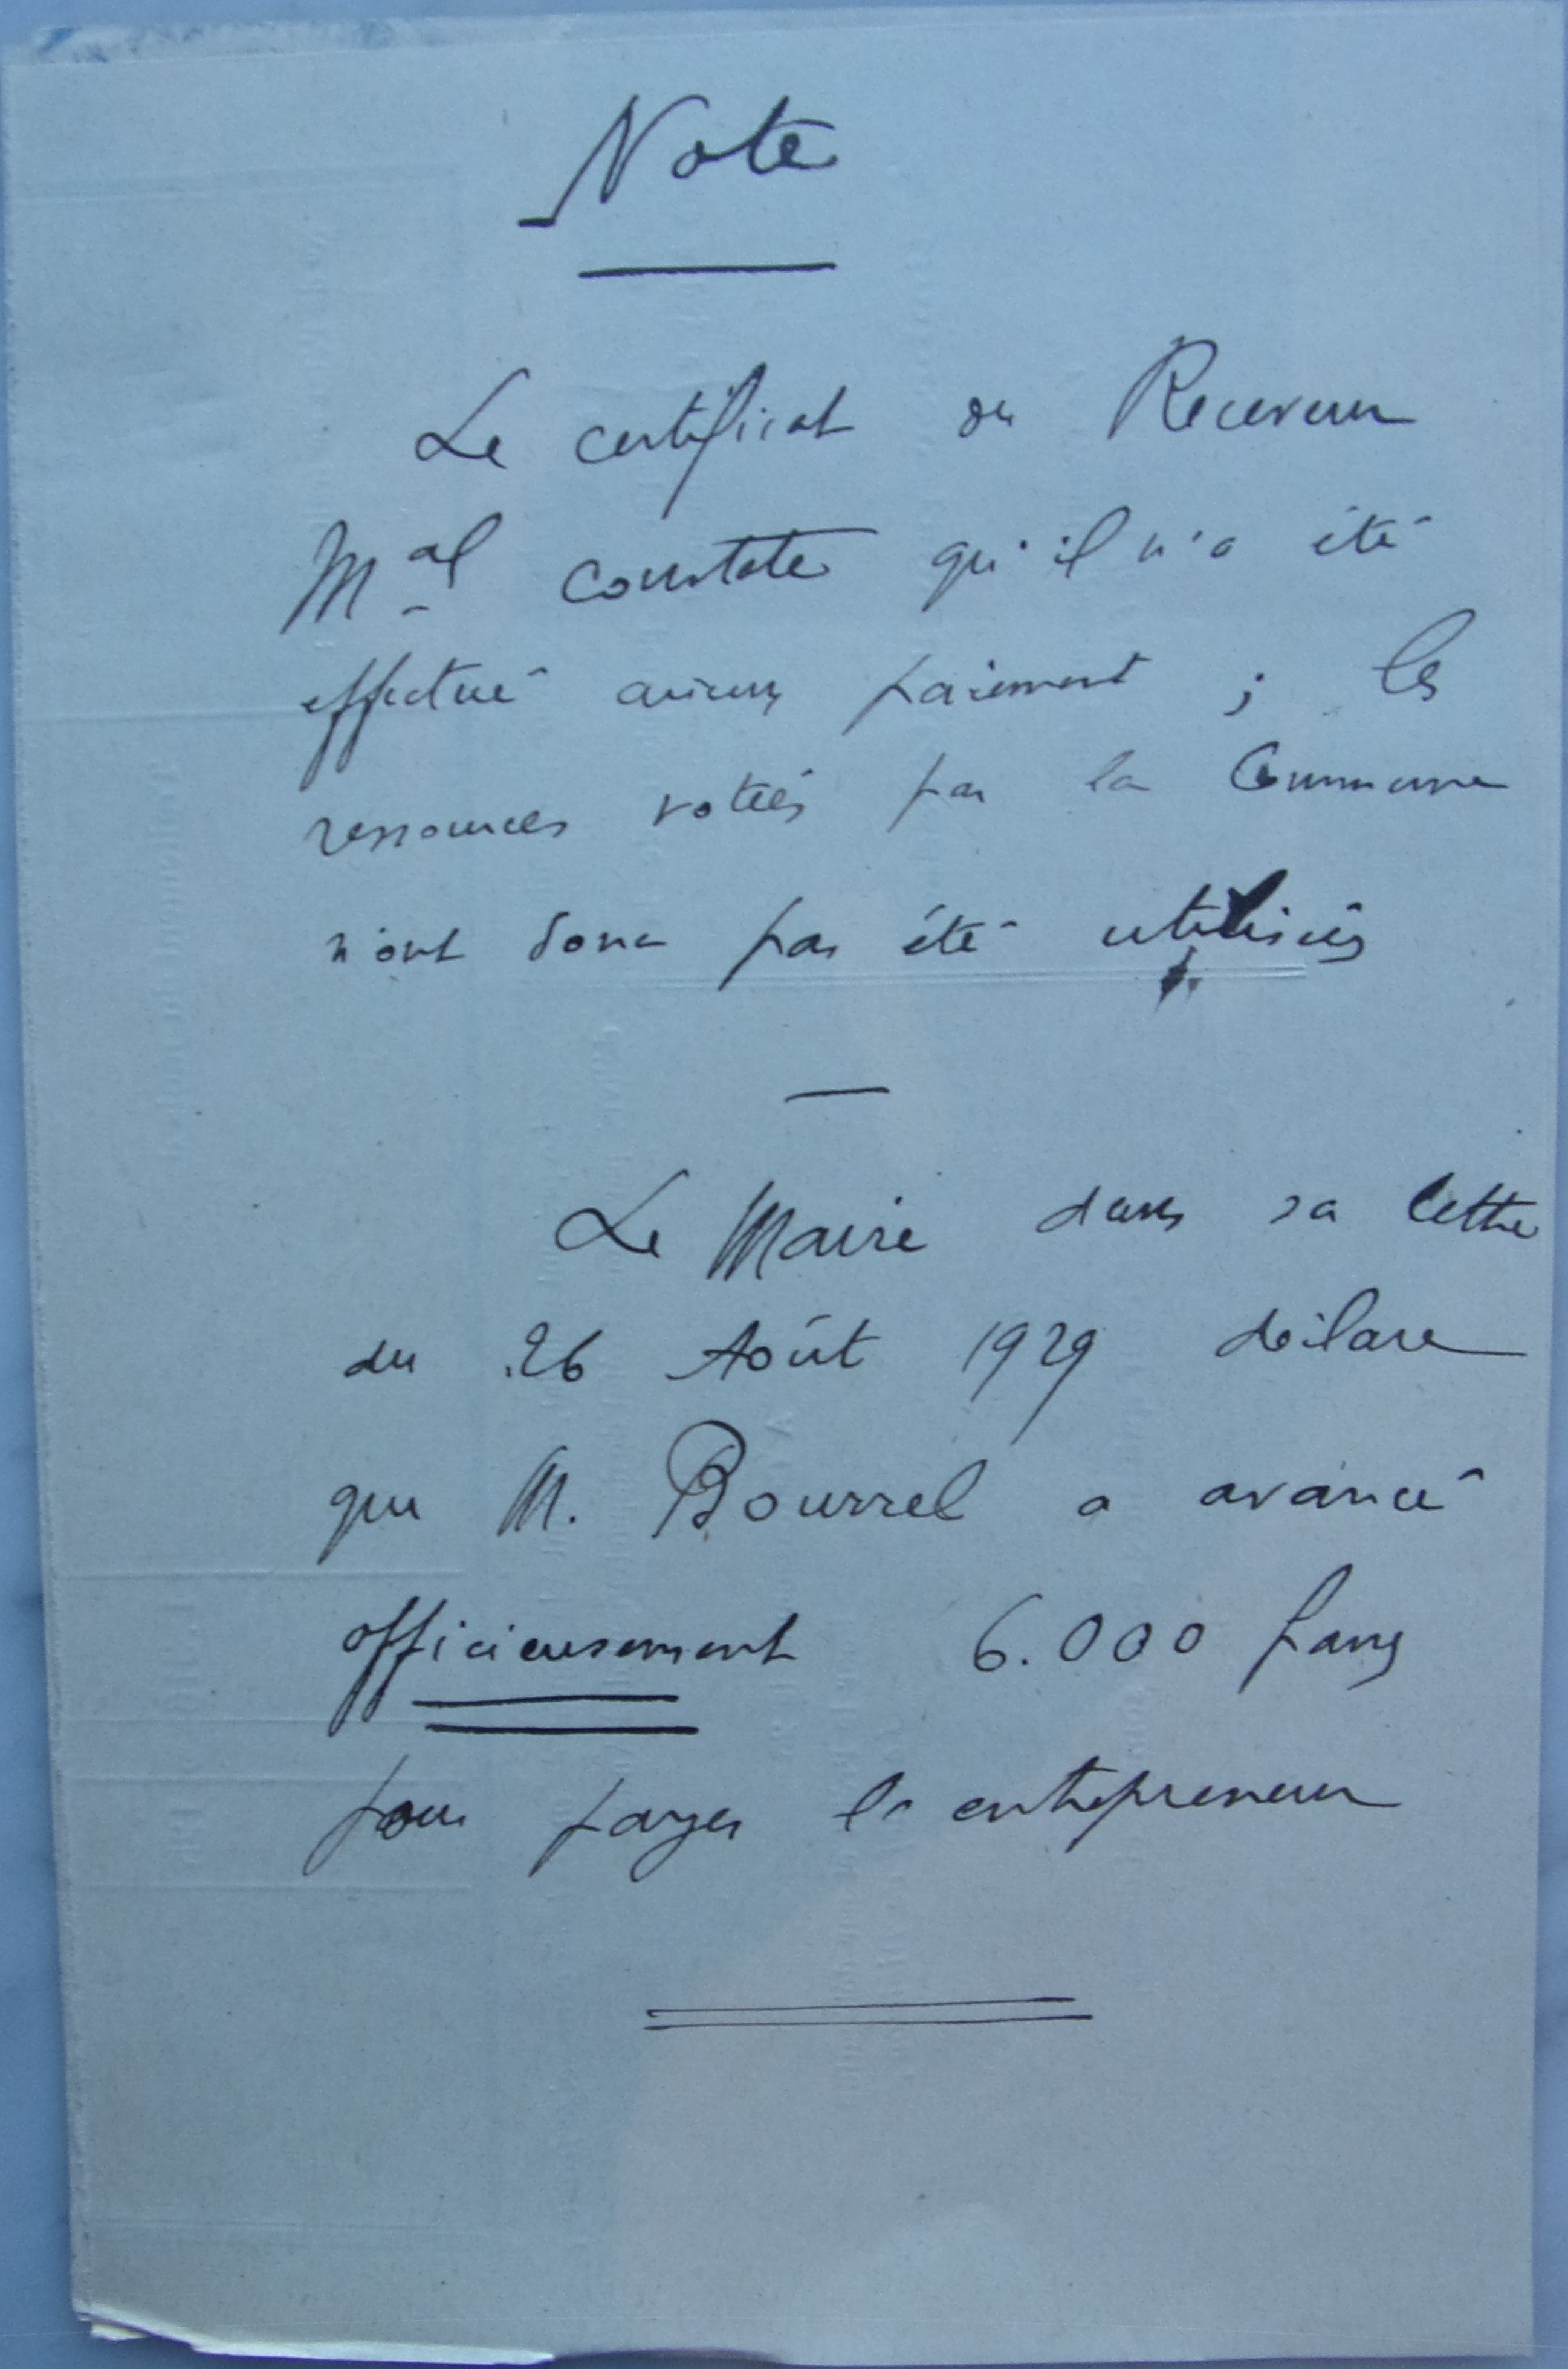 Note
Le certificat du Receveur
Mal constate qu'il n'a été
effectué aucun paiement ; les
ressources votées par la Commune
n'ont donc pas été utilisées
Le Maire dans sa lettre
du 26 Août 1929 déclare
que M. Bourrel a avancé
officieusement 6.000 francs
pour payer l'entrepreneur